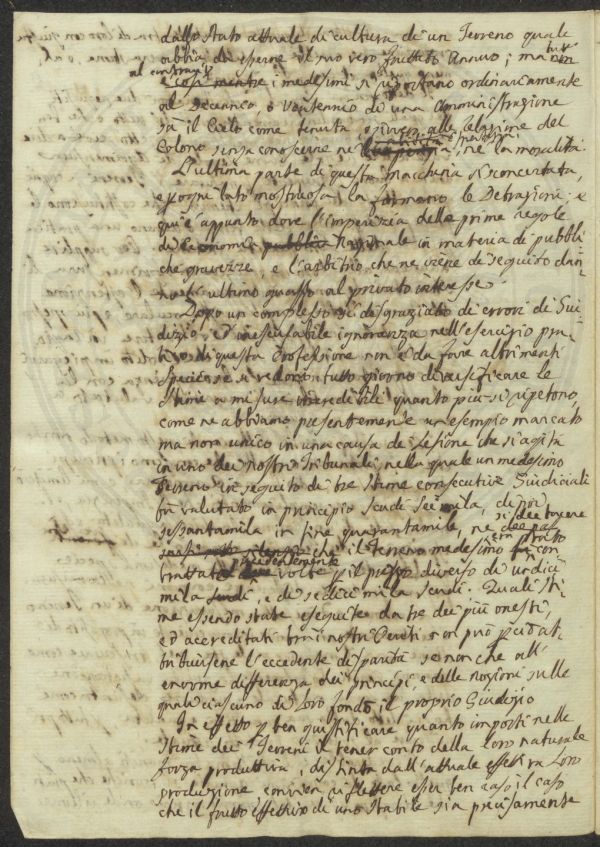 dallo stato attuale di cultura di un Terreno quale
abbia da esserne il suo vero fruttato Annuo; ma
al contrario i medesimi si riportano ordinariamente
al Decennio, o Ventennio di una Amministrazione
sia il Cielo come tenuta, alla relazione del
Colono senza conoscerne nè, nè la moralità.
L'ultima parte di questa macchina sconcertata,
e per ogni lato mostruosa, la formano le Detrazioni; e
qui è appunto dove l'imperizia delle prime regole
di Economia Razionale in materia di pubbli-
che gravezze, e l'arbitrio che ne viene di seguito dan-
no l'ultimo guasto al privato interesse.
Dopo un complesso sì disgraziato di errori di Giu-
dizio, ed inescusabile ignoranza nell'esercizio pra-
tico di questa Professione non è da farne altrimenti
specie se si vedono tutto giorno diversificare le
Stime a misure incredibili quanto più si ripetono,
come ne abbiamo presentemente un esempio marcato
ma non unico in una causa di lesione che si agita
in uno dei nostri Tribunali, nella quale un medesimo
Terreno in seguito di tre Stime consecutive Giudiciali
fu valutato in principio scudi Seimila, di poi
sessantamila in fine quarantamila, nè si dee tacere
che il Terreno medesimo era stato con
trattato precedentemente volte p. il prezzo diverso di undici
mila scudi, e di sedici mila scudi. Quali Sti-
me essendo state eseguite da tre dei più onesti,
ed accreditati tra i nostri Periti, non può perciò at-
tribuirsene l'eccedente disparità se non che all'
enorme differenza dei principi, e delle nozioni sulle
quali ciascuno di loro fondò il proprio Giudizio
In effetto p. ben giustificare quanto importi nelle
Stime dei Terreni il tener conto della loro naturale
forza produttiva, distinta dall'attuale effettiva loro
produzione convien riflettere esser ben raso il caso
che il frutto effettivo di uno stabile sia precisamente